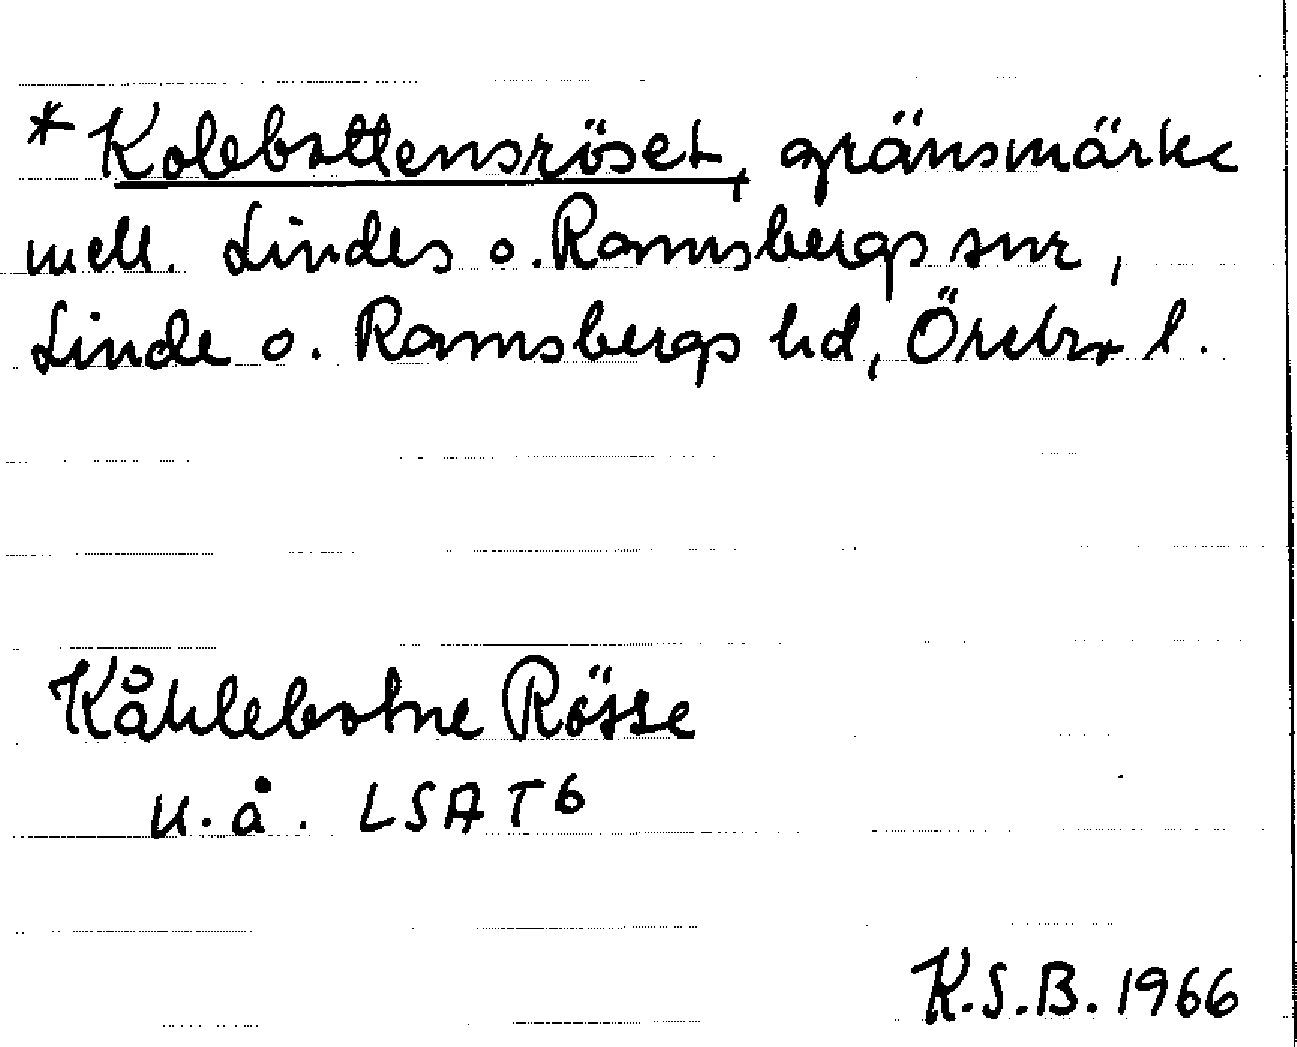 * Kolebottensröset, gränsmärke
mell. Lindes o. Ramsbergs snr,
Linde o. Ramsbergs hd, Örebro l.
Kåhlebotne Rösse
u.å. LSA T6
K.S.B. 1966